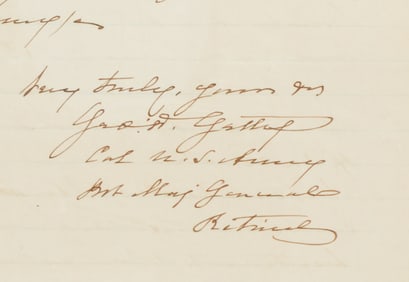 Very truly, yours &c
Geo: W. Getty
Col U. S. Army
Bvt Maj General
Retired